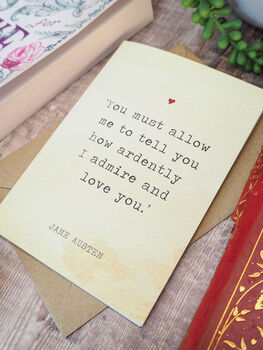 'You must allow
me to tell you
how ardently
I admire and
love you.'
JANE AUSTEN